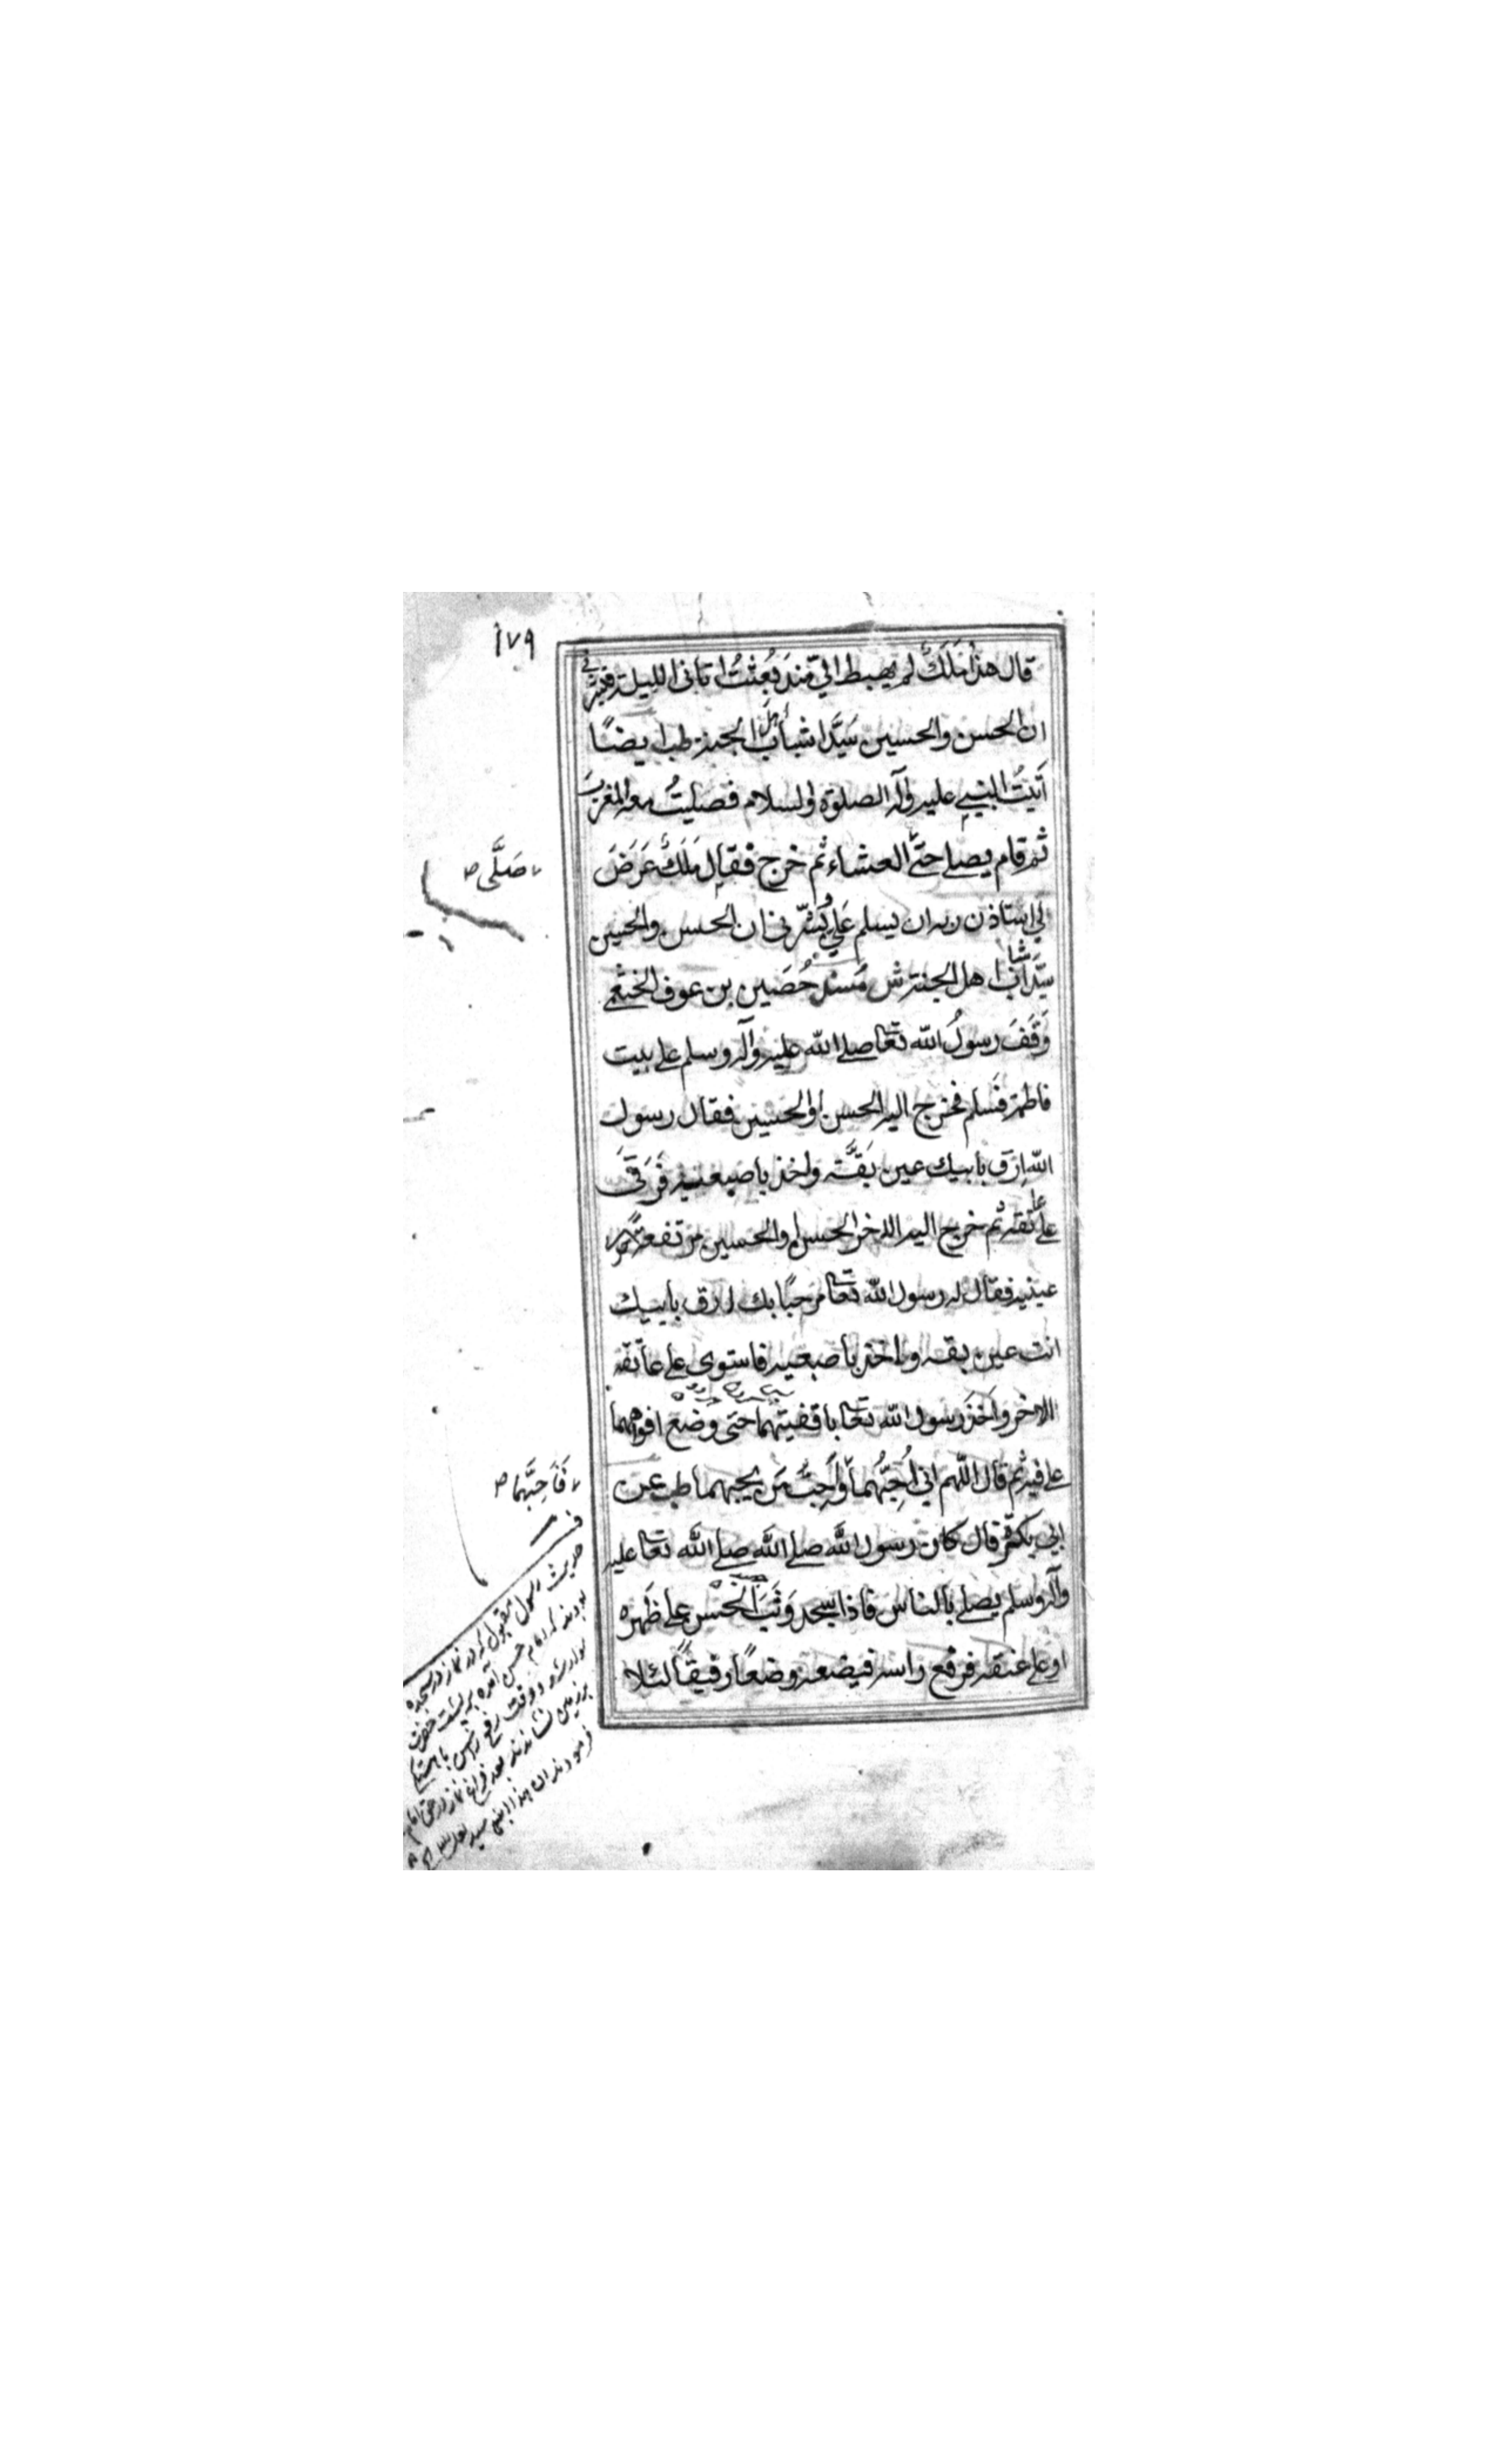 ١٧٩
قال هذا مَلَكٌ لم يهبط اليّ منذ بُعِثتُ اتانى الليلة فبشرنى
ان الحسن والحسين سَيِّدَا شباب اهل الجنة طب ايضًا
اَتَيتُ النبي عليه وآله الصلوة والسلام فصليتُ معه المغرب
ثم قام يصلے حتّى العشاء ثم خرج فقال مَلَكٌ عَرَضَ
لي استاذن ربه ان يسلم عَلَيَّ وبُشّرنى ان الحسن والحسين
سيّدا شباب اهل الجنة ش مُسند حُصَين بن عوف الخثعمي
وَقَفَ رسولُ الله تعا صلے الله عليه وآله وسلم علے بيت
فاطمة فسلم فخرج اليه الحسن او الحسين فقال رسول
الله اِرقَ بابيك عين بَقَّه واخذ باصبعيه فَرَقَى
علے عاتقه ثم خرج اليه الاخر الحسن او الحسين مرتفعة
عينيه فقال له رسول الله تعا مرحبًا بك ارق بابيك
انت عين بقه واخذ باصبعيه فاستوى علے عاتقه
الاخر واَخَذَ رسول الله تعا باقفيتهما حتى وضع افواههما
علے فيه ثم قال اللّهم اني اُحِبُّهُما واُحِبُّ مَن يحبهما طب عن
ابي بكرة قال كان رسول الله صلے الله صلے الله تعا عليه
وآله وسلم يصلے بالناس فاذا سجد وَثَبَ الحَسَن علے ظَهره
او علے عنقه فرفع راسه فيضعه وضعًا رفيقًا لئلا
صَلَّى ص
فَاَحِبَّهما ص
ف
حديث رسول مقبول كه در نماز در سجده
بودند كه امام حسن آمده بر پشت حضرت
سوار شد و وقت رفع راس باهستگی
بر زمین نشاندند بعد فراغ نماز در حق امام
فرمودند ان هذا ابني سيد